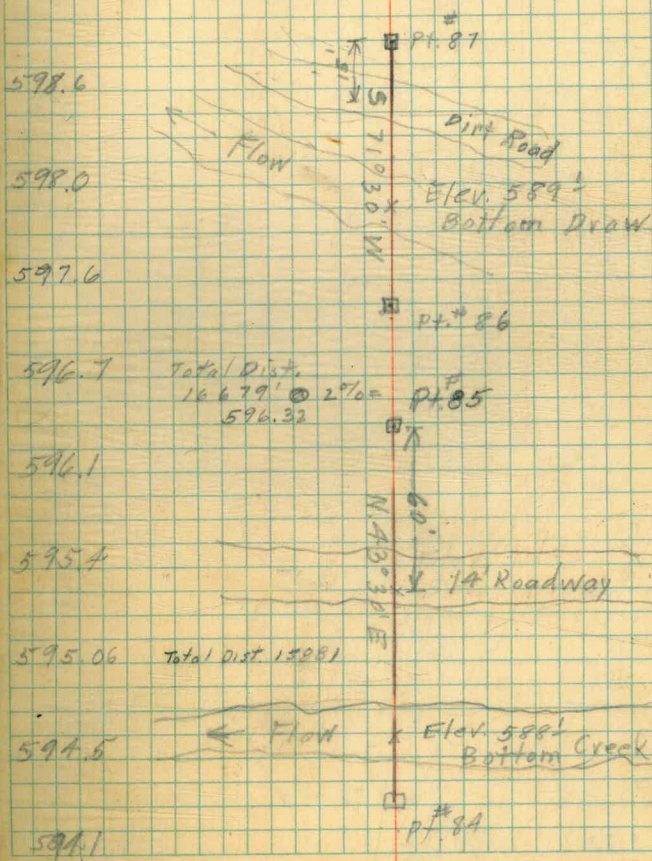 Pt. #87
598.6
15'
Dirt Road
Flow
598.0
Elev. 589'
Bottom Draw
S 71°30' W
597.6
Pt. #86
596.7
Total Dist.
16679' @ 2% =
596.32
Pt. #85
596.1
60'
N 43°30' E
595.4
14' Roadway
595.06
Total Dist.
Flow
Elev. 588'
594.5
Bottom Creek
Pt. #84
594.1